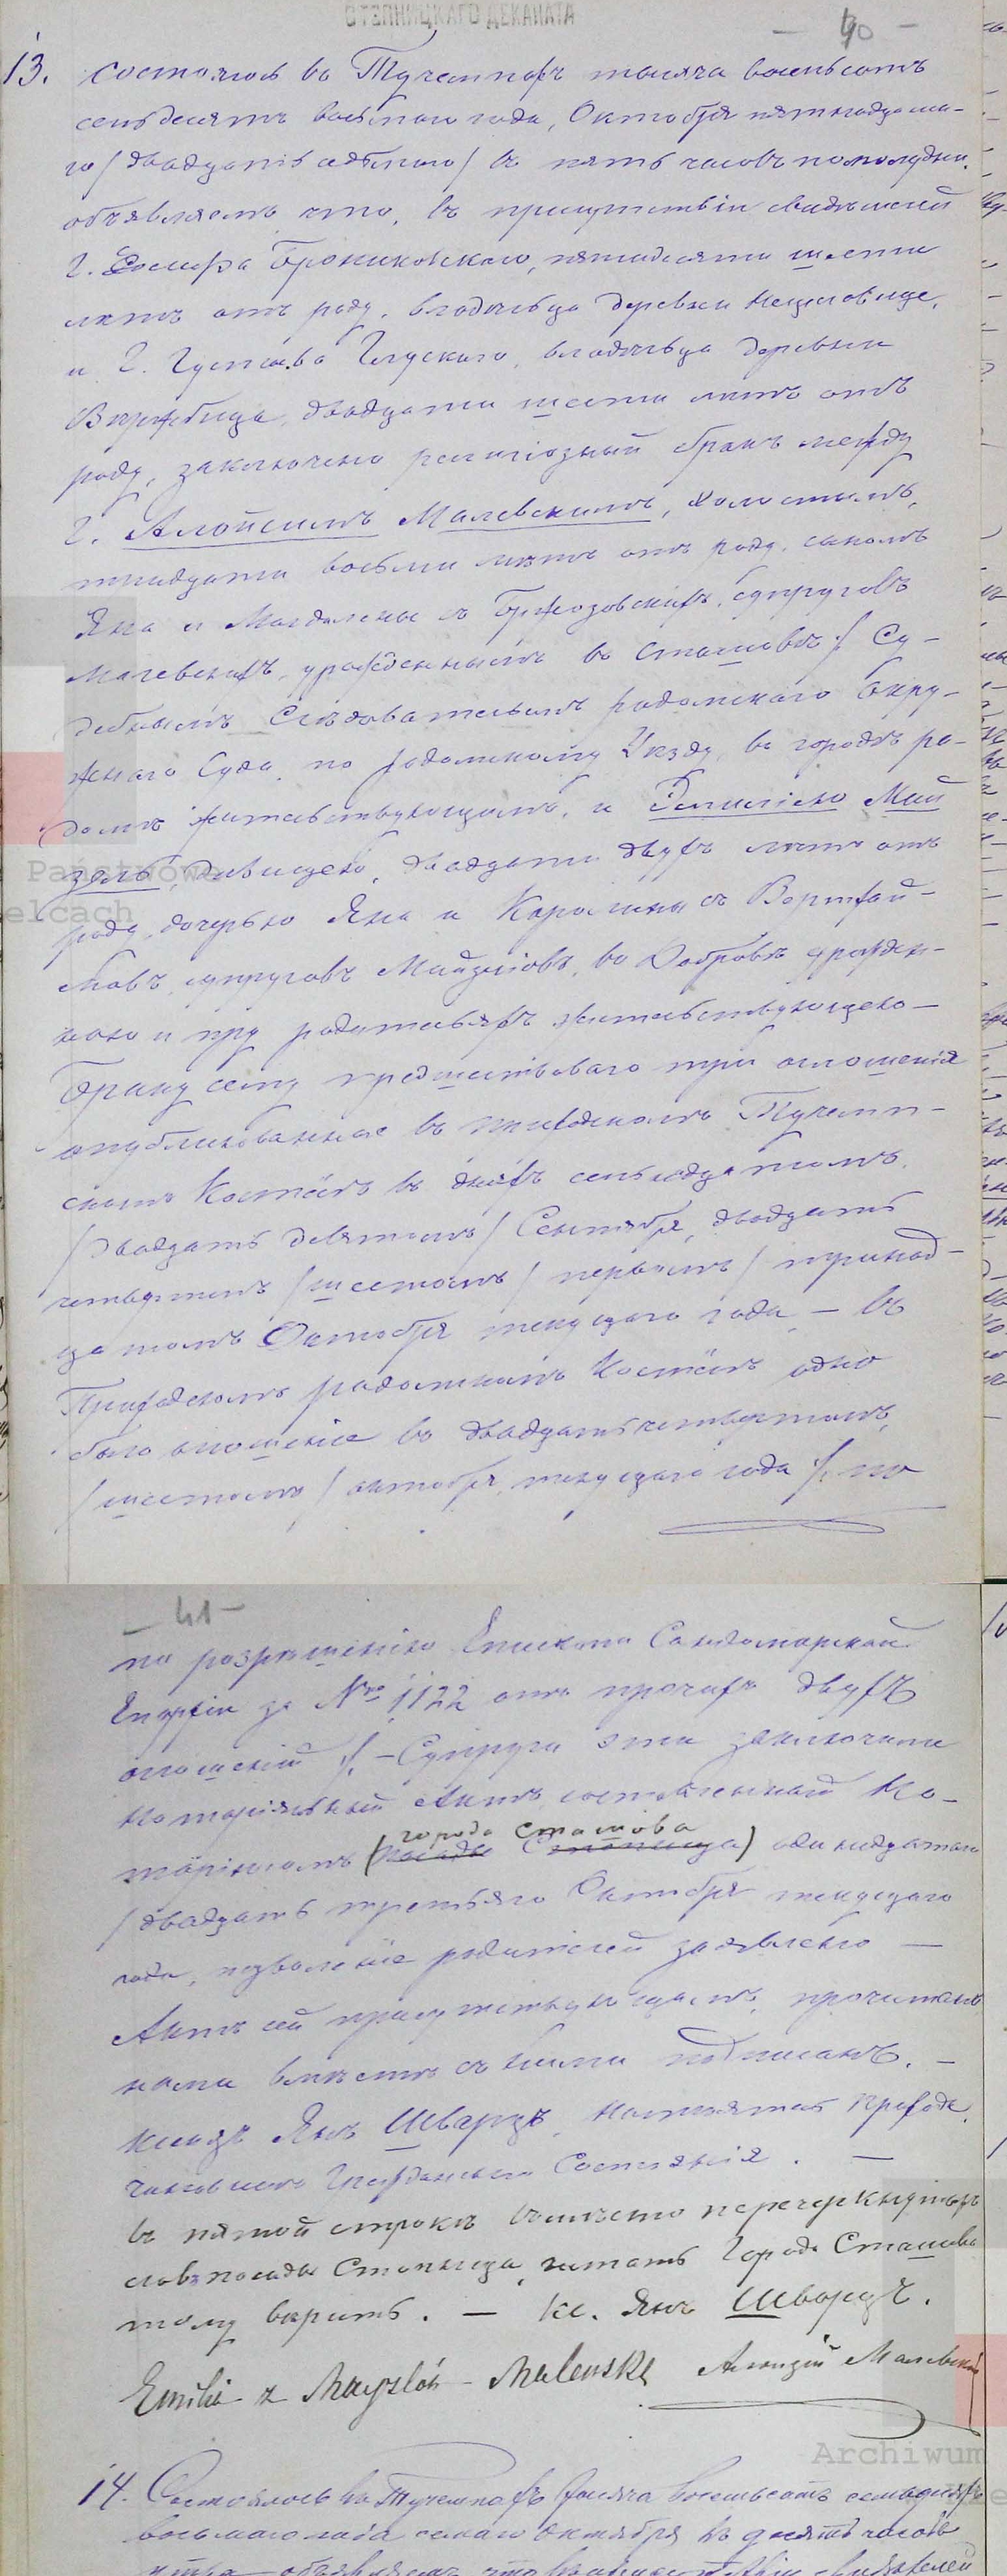 СТОПНИЦКАГО ДЕКАНАТА
– 40 –
13. Состоялось во Тучемпахъ тысяча восемьсотъ
семьдесятъ восьмаго года, Октября пятнадцата-
го / двадцать седьмаго / въ пять часовъ пополудни.
объявляемъ что, въ присутствіи свидѣтелей
Г. Брониковскаго, пятидесяти шести
лѣтъ отъ роду, владѣльца деревни
и Г. Густава владѣльца деревни
Виржбица, двадцати шести лѣтъ отъ
роду, заключено религіозный бракъ между
Г. Алойсимъ Малевскимъ, холостымъ,
тридцати восьми лѣтъ отъ роду, сыномъ
Яна и Магдалены съ Бржозовскихъ, супруговъ
Малевскихъ, урожденнымъ во Сташовѣ /. Су-
дебнымъ Слѣдователемъ радомскаго Окру-
жнаго Суда, по радомскому Уѣзду, въ городѣ ра-
домѣ жительствующимъ, и Эмиліею Май
зель, дѣвицею, двадцати двухъ лѣтъ отъ
роду, дочерью Яна и Каролины съ
супруговъ Майзлювъ, во Добровѣ урожден-
ною и при родителяхъ жительствующею –
Браку сему предшествовало три оглошенія
опубликованные въ приходскомъ Тучемп-
скомъ Костёлѣ въ дняхъ семьнадцатомъ,
/ двадцать девятомъ / Сентября, двадцать
четвертомъ / шестомъ / первомъ / тринад-
цатомъ Октября текущаго года – въ
Приходскомъ радомскомъ Костёлѣ одно
было оглошеніе во двадцать четвертомъ,
/ шестомъ / октября, текущаго года /. по
– 41 –
по розрѣшенію Епископа Сандомирской
Епархіи за Nro 1122 отъ прочихъ двухъ
оглошеній /. – Супруги эти заключили
Нотаріальный Актъ, составленный Но-
города Сташова
таріюсомъ (посады Стопница) одинадцатаго
/ двадцать третьяго Октября текущаго
года, позволеніе родителей заявлено –
Актъ сей присутствующимъ, прочитанъ
нами вмѣстѣ съ ними подписанъ. –
Ксіондзъ Янъ Шварцъ, настоятель прихода,
чиновникъ Гражданскаго Состоянія. –
въ пятой строкѣ вмѣсто перечеркнутыхъ
словъ посады Стопница, читать Города Сташова
тому вѣрить. – Кс. Янъ Шварцъ.
Emilia z Mayzlów Malewska Алоизій Малевскій
Archiwum
14. Состоялось въ Тучемпахъ тысяча восемьсотъ семьдесятъ
восьмаго года Октября въ десять часовъ
утра объявляемъ что въ присутствіи свидѣтелей
Państwowe
elcach